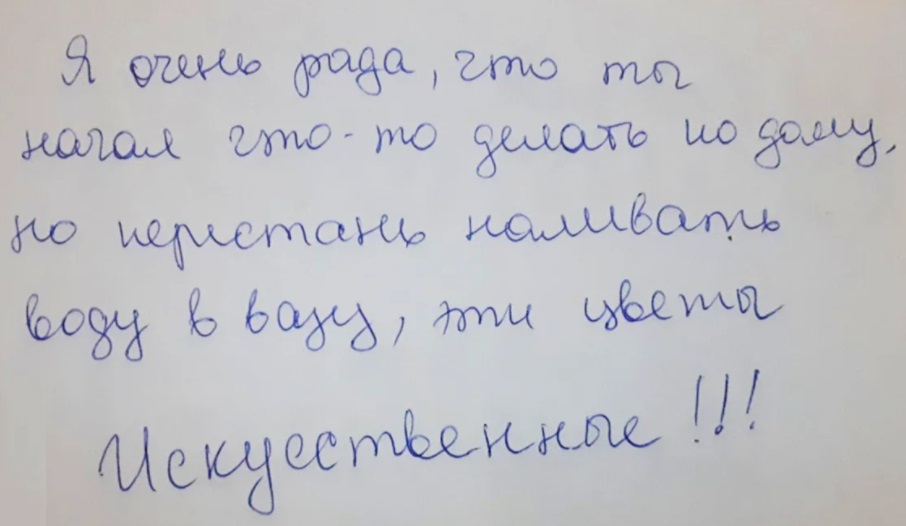 Я очень рада, что ты
начал что-то делать по дому,
но перестань наливать
воду в вазу, эти цветы
Искусственные!!!